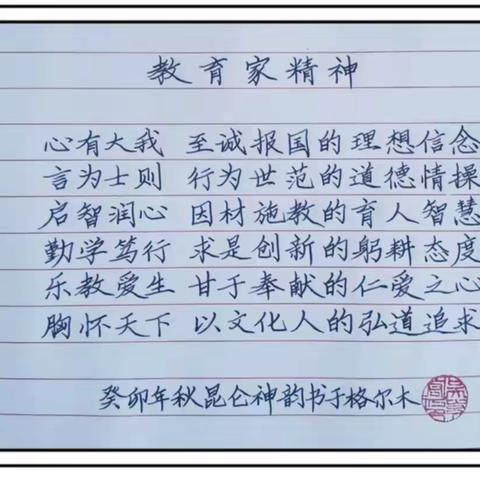 教育家精神
心有大我 至诚报国的理想信念
言为士则 行为世范的道德情操
启智润心 因材施教的育人智慧
勤学笃行 求是创新的躬耕态度
乐教爱生 甘于奉献的仁爱之心
胸怀天下 以文化人的弘道追求
癸卯年秋昆仑神韵书于格尔木